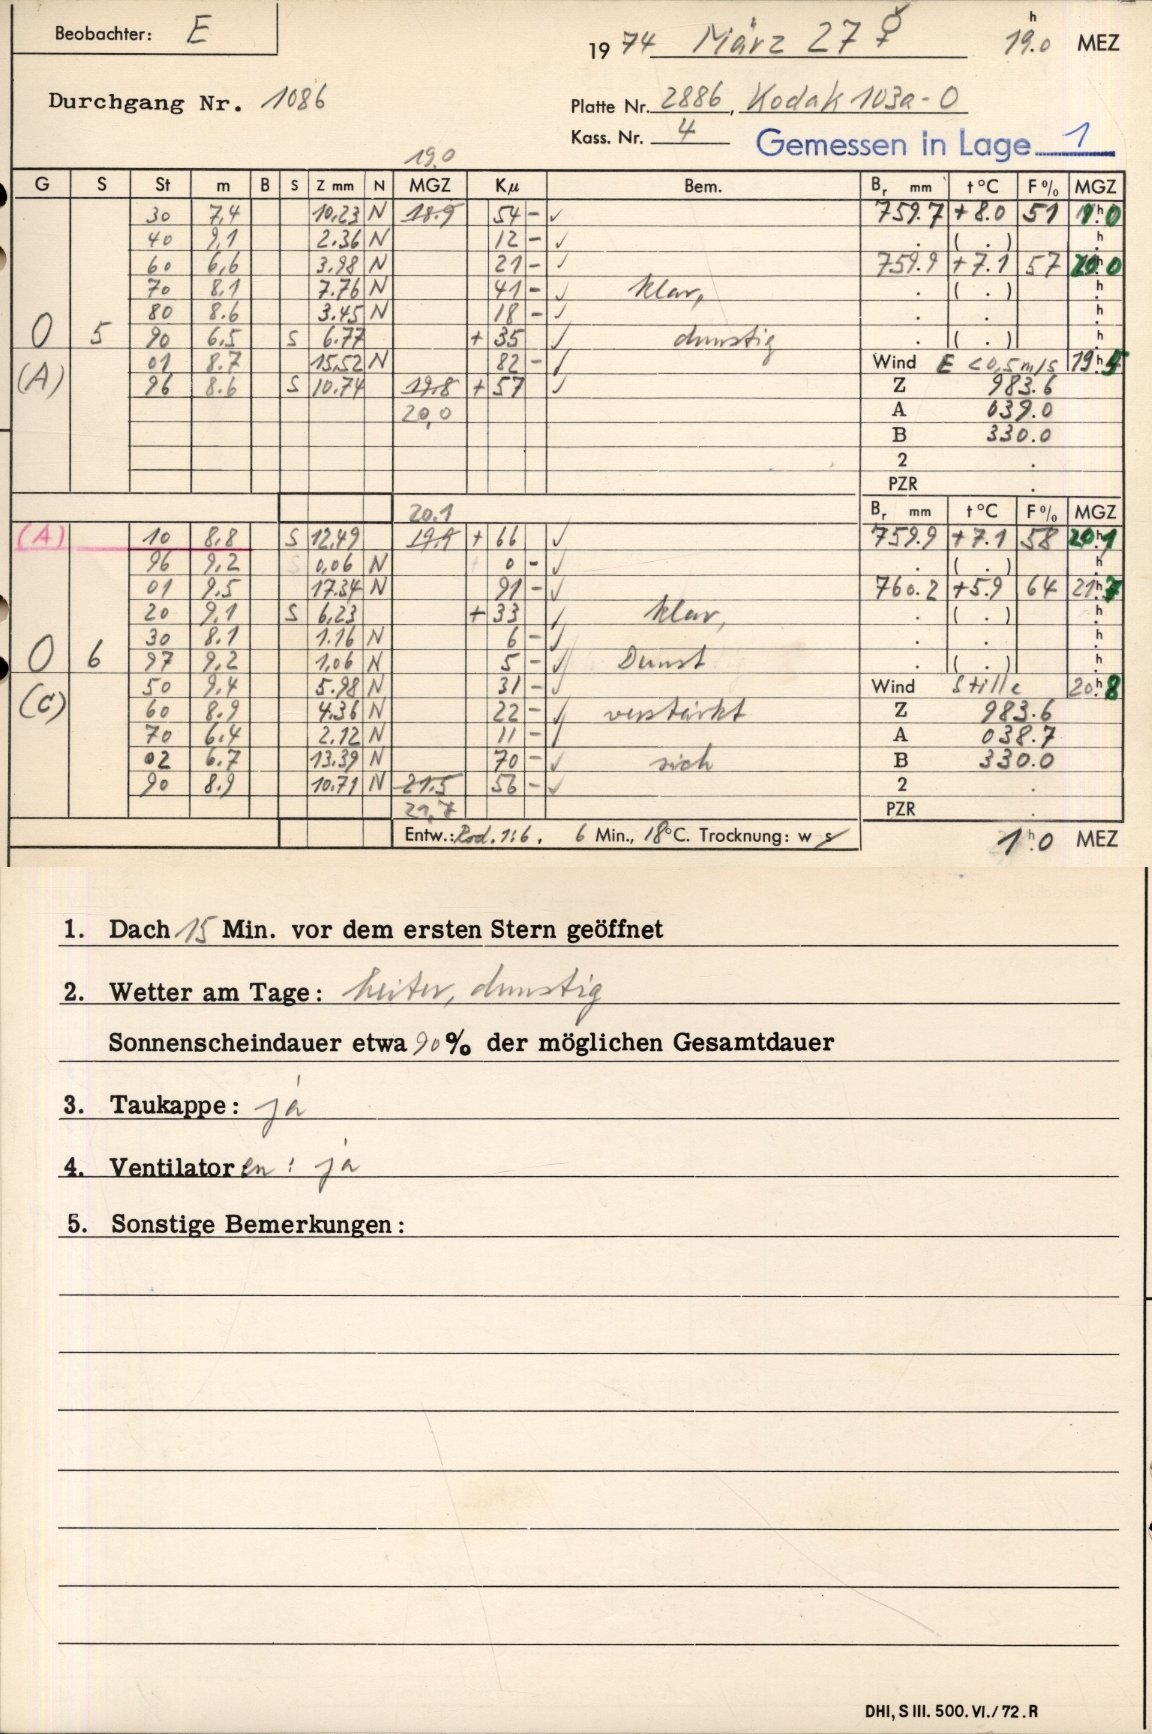 Beobachter: E
19 74 März 27 ☿ 19.0 h MEZ
Durchgang Nr. 1086
Platte Nr. 2886, Kodak 103a-O
Kass. Nr. 4 Gemessen in Lage 1
19.0
G S St m B S Z mm N MGZ Kμ Bem. Br mm t °C F % MGZ
30 7.4 10.23 N 18.9 54 - ✓ 759.7 +8.0 51 19.h0
40 9.1 2.36 N 12 - ✓ . ( . ) h
60 6.6 3.98 N 21 - ✓ 759.9 +7.1 57 20.h0
70 8.1 7.76 N 41 - ✓ klar, . ( . ) h
80 8.6 3.45 N 18 - ✓ . . h
0 5 90 6.5 S 6.77 + 35 ✓ dunstig . ( . ) h
(A) 01 8.7 15.52 N 82 - ✓ Wind E <0,5 m/s 19.h5
96 8.6 S 10.74 19.8 + 57 ✓ Z 983.6
20,0 A 039.0
B 330.0
2 .
PZR .
20.1 Br mm t °C F % MGZ
(A) 10 8.8 S 12.49 19.9 + 66 ✓ 759.9 +7.1 58 20.h1
96 9.2 0,06 N 0 - ✓ . ( . ) h
01 9.5 17.34 N 91 - ✓ 760.2 +5.9 64 21.h7
20 9.1 S 6,23 + 33 ✓ klar, . ( . ) h
30 8.1 1.16 N 6 - ✓ . . h
0 6 97 9.2 1,06 N 5 - ✓ Dunst . ( . ) h
(C) 50 9.4 5.98 N 31 - ✓ Wind Stille 20.h8
60 8.9 4.36 N 22 - ✓ verstärkt Z 983.6
70 6.4 2.12 N 11 - ✓ A 038.7
02 6.7 13.39 N 70 - ✓ sich B 330.0
90 8.9 10.71 N 21.5 56 - ✓ 2 .
21,7 PZR .
Entw.: Rod. 1:6. 6 Min., 18°C. Trocknung: w s 1.h0 MEZ
1. Dach 15 Min. vor dem ersten Stern geöffnet
2. Wetter am Tage: heiter, dunstig
Sonnenscheindauer etwa 90% der möglichen Gesamtdauer
3. Taukappe: ja
4. Ventilatoren: ja
5. Sonstige Bemerkungen:
DHI, S III. 500. VI./72. R